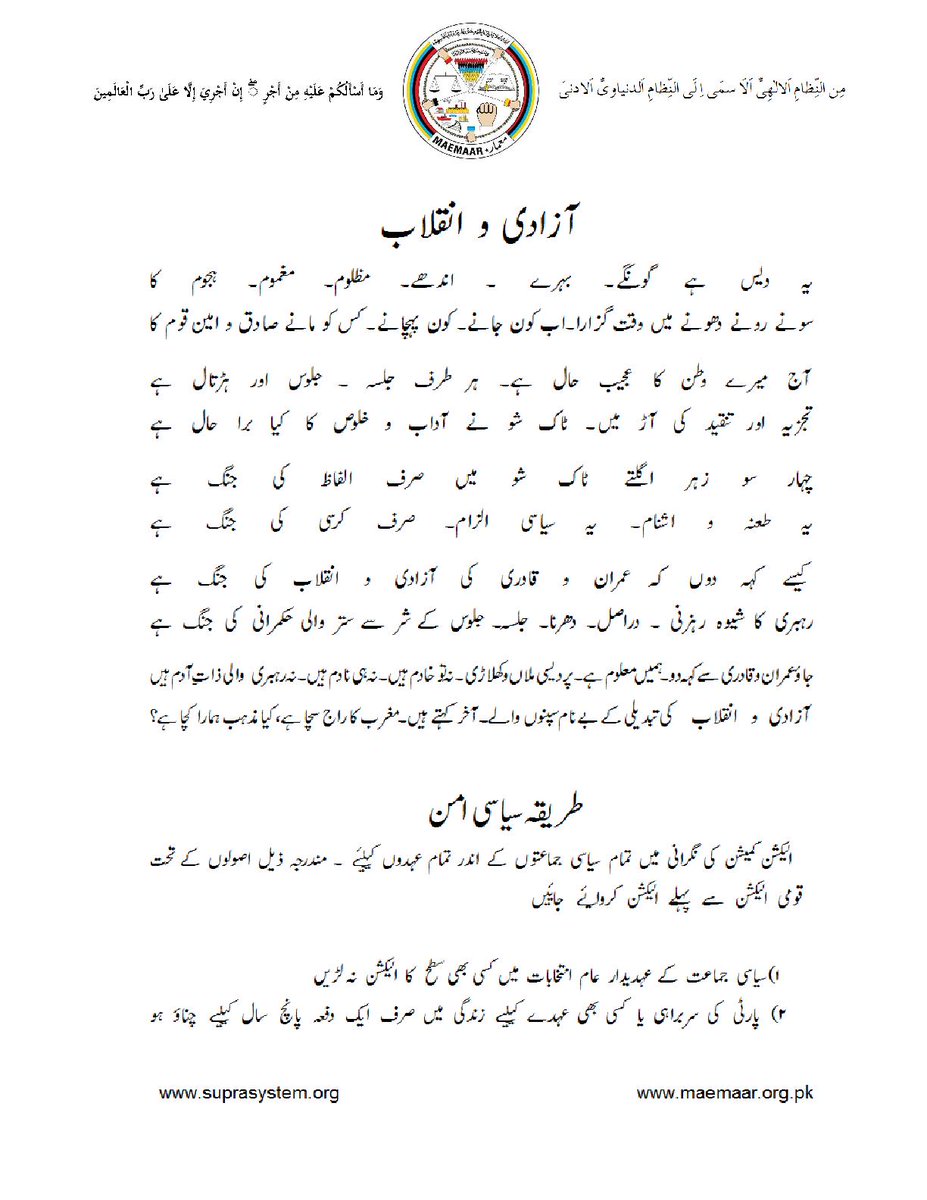 مِن النِّظامِ اَلالٰهِیٌ اَلَا سمٰی اِلَی النِّظامِ اَلدنیاویٌ اَلادنیَ
وَمَا أَسْأَلُكُمْ عَلَيْهِ مِنْ أَجْرٍ ۖ إِنْ أَجْرِيَ إِلَّا عَلَىٰ رَبِّ الْعَالَمِينَ
MAEMAAR معمار
آزادی و انقلاب
یہ دیس ہے گونگے۔ بہرے ۔ اندھے۔ مظلوم۔ مغموم۔ ہجوم کا
سونے رونے دھونے میں وقت گزارا۔اب کون جانے۔ کون پہچانے۔ کس کو مانے صادق و امین قوم کا
آج میرے وطن کا عجیب حال ہے۔ ہر طرف جلسہ ۔ جلوس اور ہڑتال ہے
تجزیہ اور تنقید کی آڑ میں۔ ٹاک شو نے آداب و خلوص کا کیا برا حال ہے
چہار سو زہر اگلتے ٹاک شو میں صرف الفاظ کی جنگ ہے
یہ طعنہ و اشنام۔ یہ سیاسی الزام۔ صرف کرسی کی جنگ ہے
کیسے کہہ دوں کہ عمران و قادری کی آزادی و انقلاب کی جنگ ہے
رہبری کا شیوہ رہزنی ۔ دراصل۔ دھرنا۔ جلسہ۔ جلوس کے شر سے ستر والی حکمرانی کی جنگ ہے
جاؤ عمران و قادری سے کہہ دو۔ ہمیں معلوم ہے۔ پردیسی ملاں و کھلاڑی۔ نہ تو خادم ہیں۔ نہ ہی نادم ہیں۔ نہ رہبری والی ذاتِ آدم ہیں
آزادی و انقلاب کی تبدیلی کے بے نام سپنوں والے۔ آخر کہتے ہیں۔ مغرب کا راج سچا ہے، کیا مذہب ہمارا کچا ہے؟
طریقہ سیاسی امن
الیکشن کمیشن کی نگرانی میں تمام سیاسی جماعتوں کے اندر تمام عہدوں کیلئے ۔ مندرجہ ذیل اصولوں کے تحت
قومی الیکشن سے پہلے الیکشن کروائے جائیں
۱)سیاسی جماعت کے عہدیدار عام انتخابات میں کسی بھی سطح کا الیکشن نہ لڑیں
۲) پارٹی کی سربراہی یا کسی بھی عہدے کیلیے زندگی میں صرف ایک دفعہ پانچ سال کیلیے چناؤ ہو
www.suprasystem.org
www.maemaar.org.pk